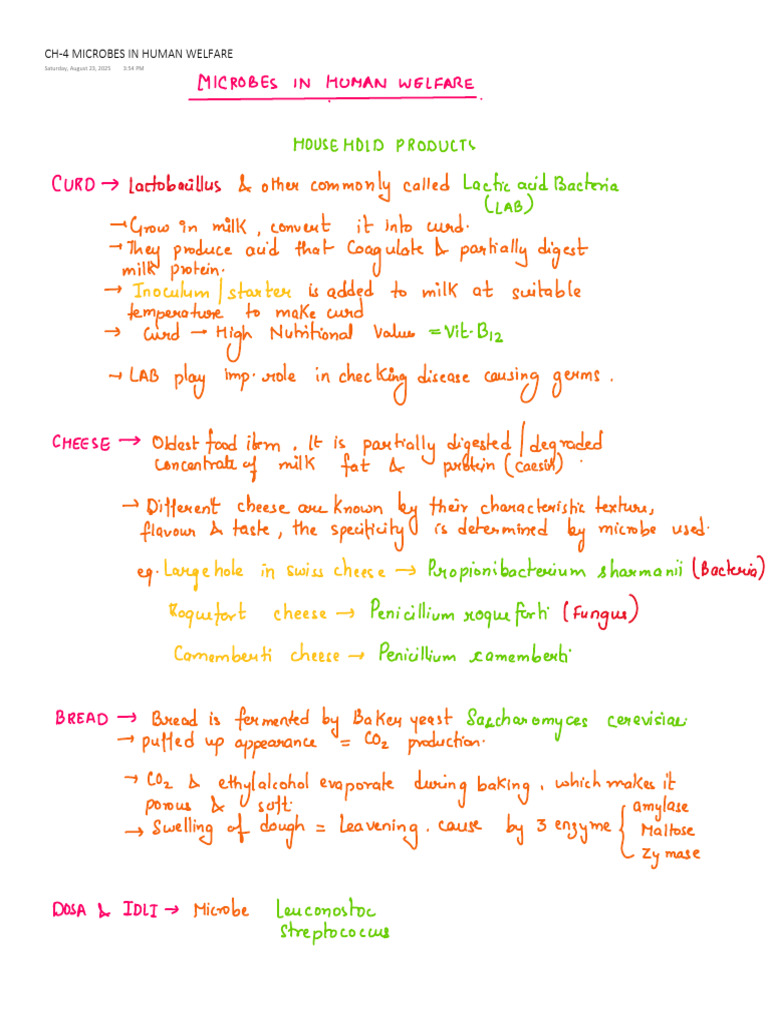 CH-4 MICROBES IN HUMAN WELFARE
Saturday, August 23, 2025 3:54 PM
MICROBES IN HUMAN WELFARE
HOUSEHOLD PRODUCTS
CURD → Lactobacillus & other commonly called Lactic acid Bacteria
(LAB)
→ Grow in milk, convert it into curd.
→ They produce acid that Coagulate & partially digest
milk protein.
→ Inoculum/starter is added to milk at suitable
temperature to make curd
→ Curd → High Nutritional Value = Vit. B12
→ LAB play imp. role in checking disease causing germs.
CHEESE → Oldest food item. It is partially digested/degraded
concentrate of milk fat & protein (caesin).
→ Different cheese are known by their characteristic texture,
flavour & taste, the specificity is determined by microbe used.
eg. Large hole in swiss cheese → Propionibacterium sharmanii (Bacteria)
Roquefort cheese → Penicillium roqueforti (Fungus)
Camemberti cheese → Penicillium camemberti
BREAD → Bread is fermented by Baker yeast Saccharomyces cerevisiae.
→ puffed up appearance = CO2 production.
→ CO2 & ethylalcohol evaporate during baking, which makes it
porous & soft.
→ Swelling of dough = Leavening. cause by 3 enzyme { amylase
Maltose
Zymase
DOSA & IDLI → Microbe Leuconostoc
Streptococcus